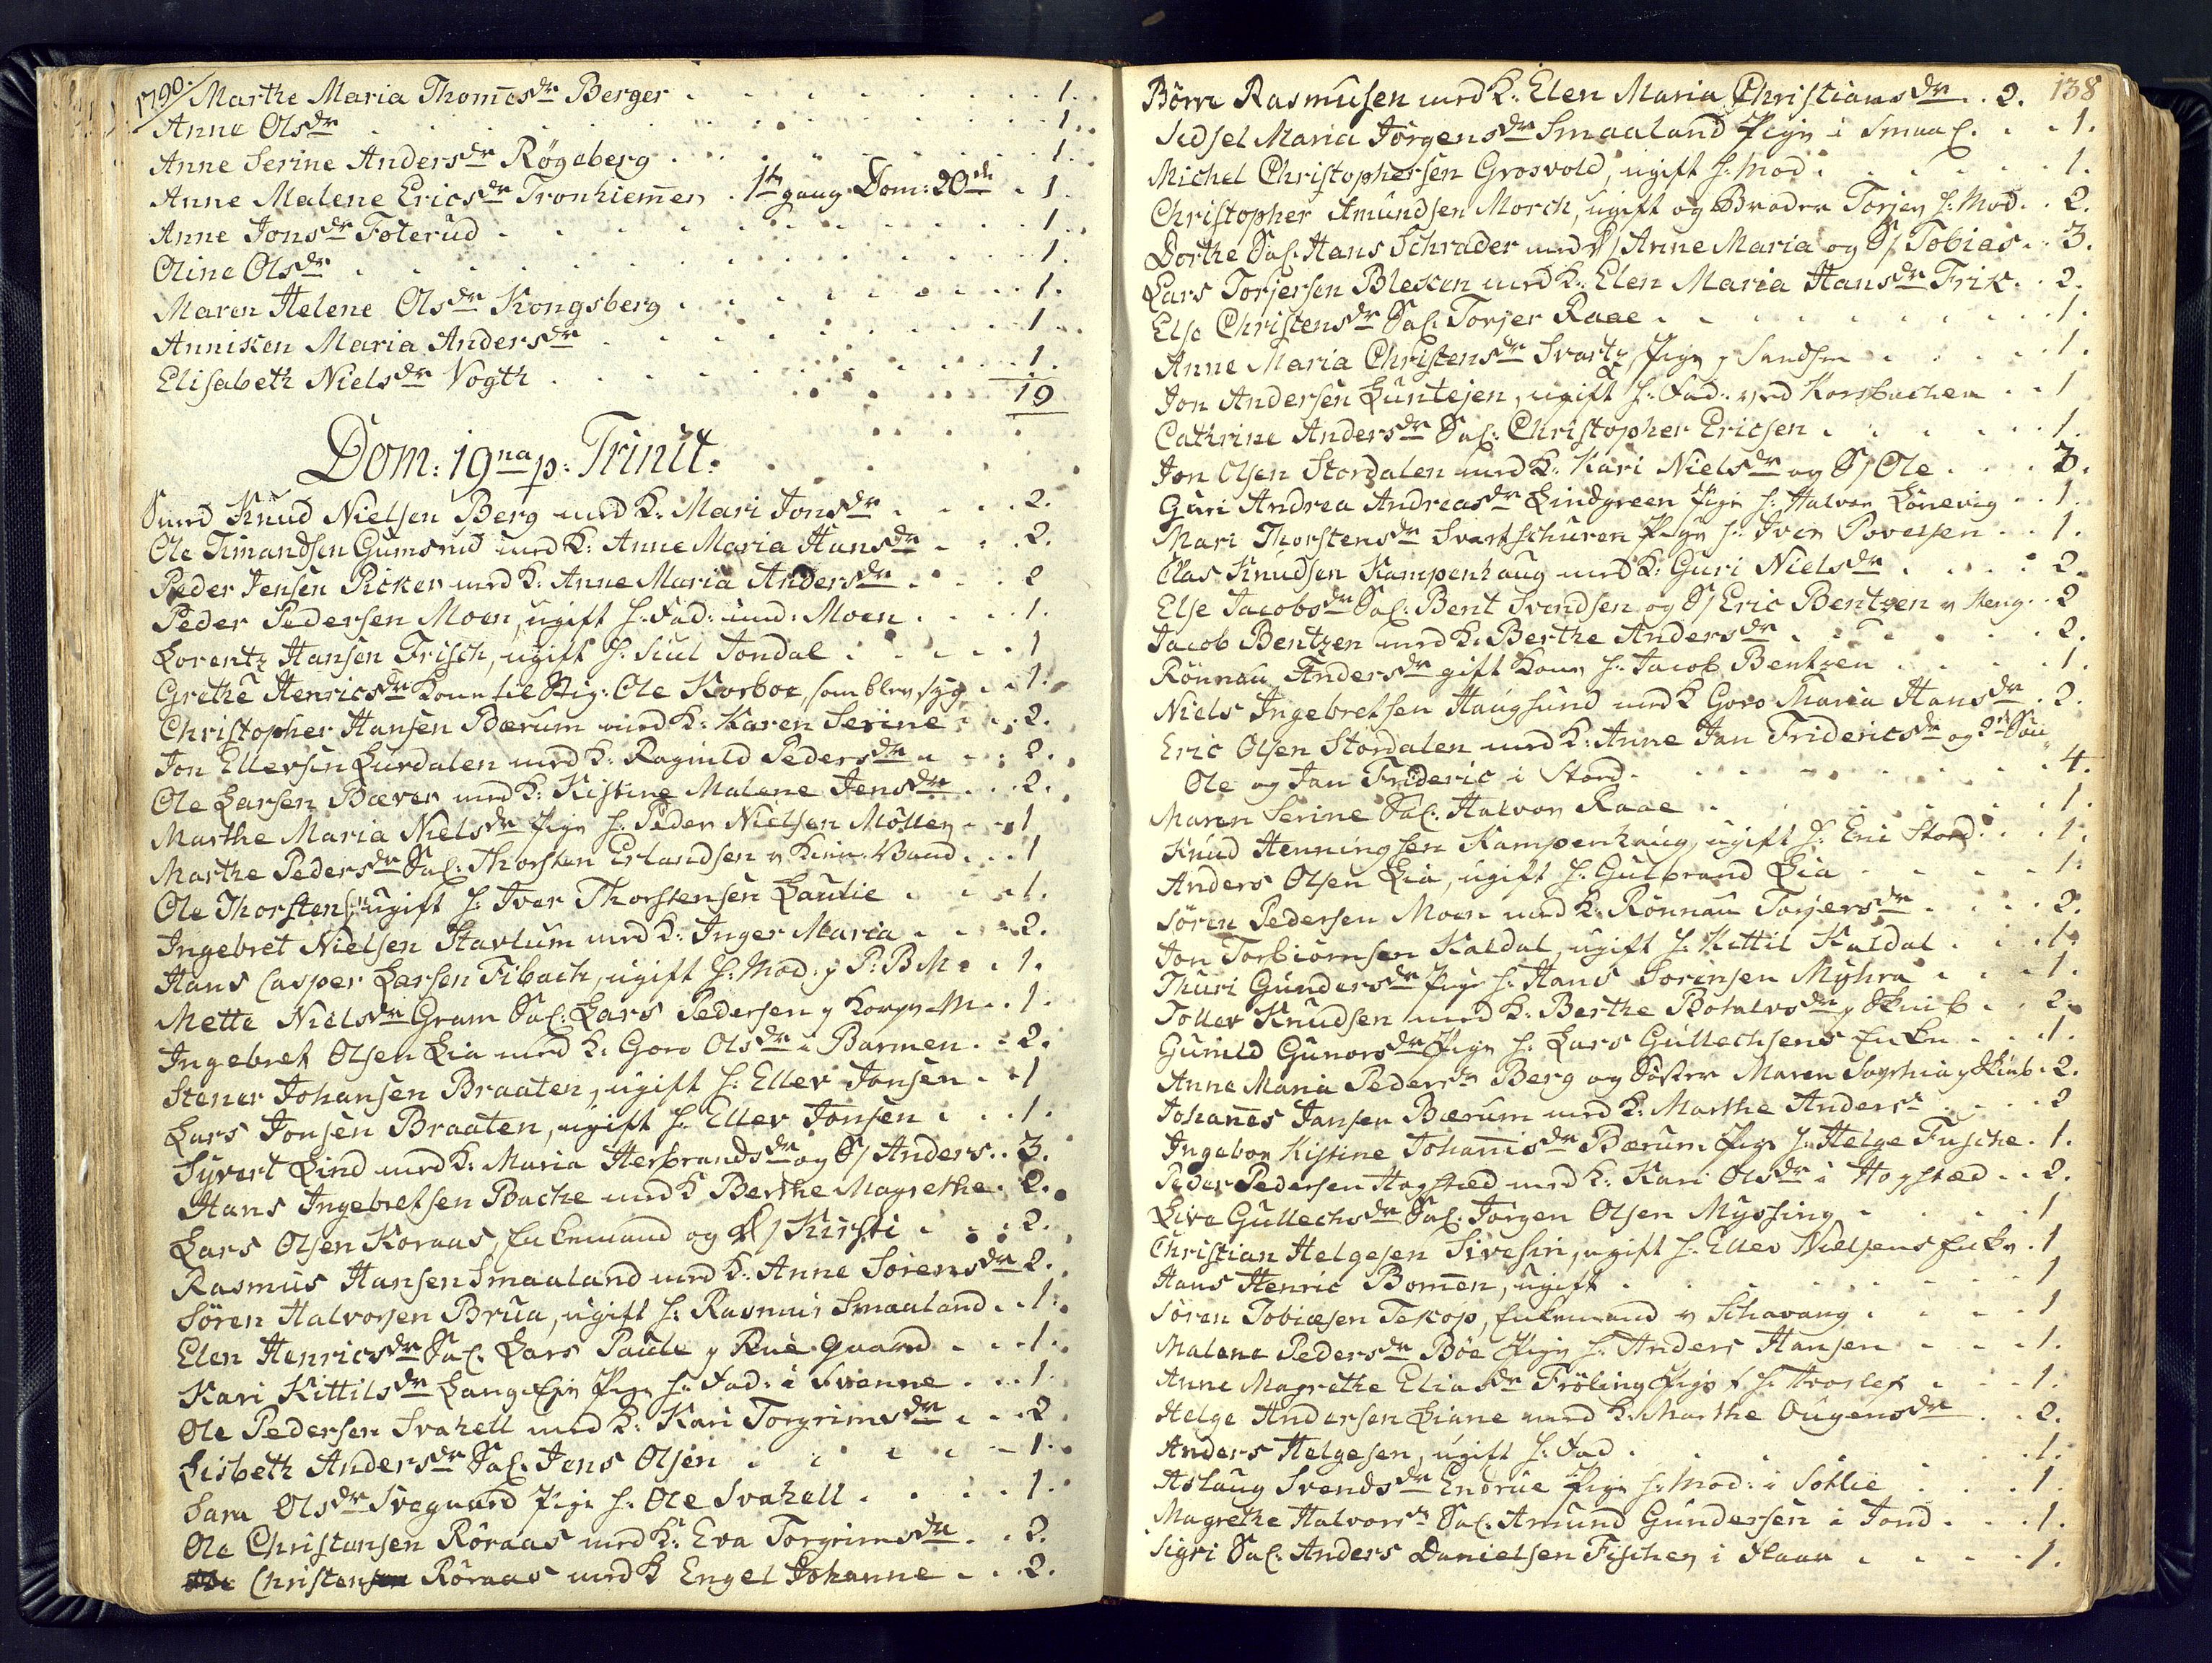 1790.
Marthe Maria Thomesdr Berger 1.
Anne Olsdr 1.
Anne Serine Andersdr Røgeberg 1.
Anne Malene Ericsdr Tronhiemen 1te gang Dom: 20de 1
Anne Jonsdr Foterud 1
Oline Olsdr 1.
Maren Helene Olsdr Kongsberg 1.
Anniken Maria Andersdr 1
Elisabeth Nielsdr Vogth 1.
19
Dom: 19na p: Trinit.
Knud Nielsen Berg med K: Mari Jonsdr 2.
Ole Amandsen Gumsrud med K: Anne Maria Hansdr 2.
Peder Jensen Picker med K: Anne Maria Andersdr 2
Peder Pedersen Moen, ugift h: Fad: Moen 1.
Lorentz Hansen Frisch, ugift h: Siul Jondal 1
Grethe Henricsdr Kone til Stig: Ole Korboe, som blev syg 1.
Christopher Hansen Bærum med K: Karen Serine 2.
Jon Ellevsen Lurdalen med K: Ragnild Pedersdr 2.
Ole Larsen Bæver med K: Kistine Malene Jensdr 2.
Marthe Maria Nielsdr Pige h: Peder Nielsen Möller 1
Marthe Pedersdr Sal: Thorsten Erlandsen 1
Ole Thorstens: ugift h: Iver Thorstensen Laulie 1.
Ingebret Nielsen Stavlum med K: Inger Maria 2.
Hans Casper Larsen Fibach, ugift h: Mod: p P: B M 1.
Mette Nielsdr Gram Sal: Lars Pedersen 1.
Ingebret Olsen Lia med K: Goro Olsdr i Barmen 2.
Stener Johansen Braaten, ugift h: Ellev Jonsen 1
Lars Jonsen Braaten, ugift h: Ellev Jonsen 1.
Syvert Lind med K: Maria Herbrandsdr og S/ Anders 3.
Hans Ingebretsen Bache med K Berthe Magrethe 2.
Lars Olsen Koraas, Enkemand og D/ Kirsti 2.
Rasmus Hansen Smaaland med K: Anne Sörensdr 2.
Sören Halvorsen Brua, ugift h: Rasmus Smaaland 1.
Elen Henricsdr Sal: Lars Paule 1.
Kari Kittilsdr Pige h: Fad: i Svenne 1.
Ole Pedersen Svahell med K: Kari Torgrimsdr 2
Lisbeth Andersdr Sal: Jens Olsen 1.
Sara Olsdr Svegaard Pige h: Ole Svahell 1.
Ole Christensen Röraas med K: Eva Torgrimsdr 2.
Christen Röraas med K Engel Johanne 2.
138
Börre Rasmusen med K: Elen Maria Christiansdr 2.
Sidsel Maria Jörgensdr Smaaland Pige i Smaal. 1.
Michel Christophersen Grosvold, ugift h: Mod 1.
Christopher Amundsen Morch, ugift og Broder Torjer h: Mod 2.
Dorthe Sal: Hans Schrader med D/ Anne Maria og S/ Tobias 3.
Lars Torjersen Bleken med K: Elen Maria Hansdr Frik 2.
Else Christensdr Sal: Torjer Raae 1.
Anne Maria Christensdr Svartz Pige 1.
Jon Andersen Luntejen, ugift h: Fad: ved Korsbachen 1
Cathrine Andersdr Sal: Christopher Ericsen 1.
Jon Olsen Stordalen med K: Kari Nielsdr og S/ Ole 3.
Guri Andrea Andreasdr Lindgreen Pige h: Halvor Lönevig 1.
Mari Thorstensdr Svartschuren Pige h: Iver Povelsen 1.
Clas Knudsen Kampenhaug med K: Guri Nielsdr 2.
Else Jacobsdr Sal: Bent Svendsen og S/ Eric Bentzen 2
Jacob Bentzen med K: Berthe Andersdr 2.
Rönnau Andersdr gift Kone h: Jacob Bentzen 1.
Niels Ingebretsen Haugsund med K Goro Maria Hansdr 2.
Eric Olsen Stordalen med K: Anne Jan Fridericsdr og 2de Sön
Ole og Jan Frideric i Stord. 4.
Maren Serine Sal: Halvor Raae 1.
Knud Henningsen Kampenhaug, ugift h: Eric Stord. 1.
Anders Olsen Lia, ugift h: Gulbrand Lia 1.
Sören Pedersen Moen med K: Rönnau Torjersdr 2.
Jon Torbiörnsen Kaldal, ugift h: Kittil Kaldal 1.
Thuri Gundersdr Pige h: Hans Sorensen Myhra 1.
Tollev Knudsen med K: Berthe Botolvsdr 2.
Gunild Gunorsdr Pige h: Lars Gullechsens Enke 1.
Anne Maria Pedersdr Berg og Söster Maren Sophia 2.
Johanes Jansen Bærum med K: Marthe Andersd 2
Ingebor Kistine Johanisdr Bærum Pige h: Helge Fusche 1.
Peder Pedersen Hogstæd med K: Kari Olsdr i Hogstæd 2.
Live Gullechsdr Sal: Jörgen Olsen Myssing 1
Christian Helgesen Sivesin, ugift h: Ellev Nielsens Enke 1
Hans Henric Bomen, ugift 1
Sören Tobiæsen Teskop, Enkemand 1
Malene Pedersdr Böe Pige h: Anders Hansen 1.
Anne Magrethe Eliasdr Fröling Pige 1.
Helge Andersen Liane med K: Marthe Ougensdr 2.
Anders Helgesen, ugift h: Fad 1.
Aslaug Svendsdr Endrue Pige h: Mod: i Sollie 1.
Magrethe Halvorsd Sal: Amund Gundersen i Jond 1.
Sigri Sal: Anders Danielsen Fischer i Flaaa 1.